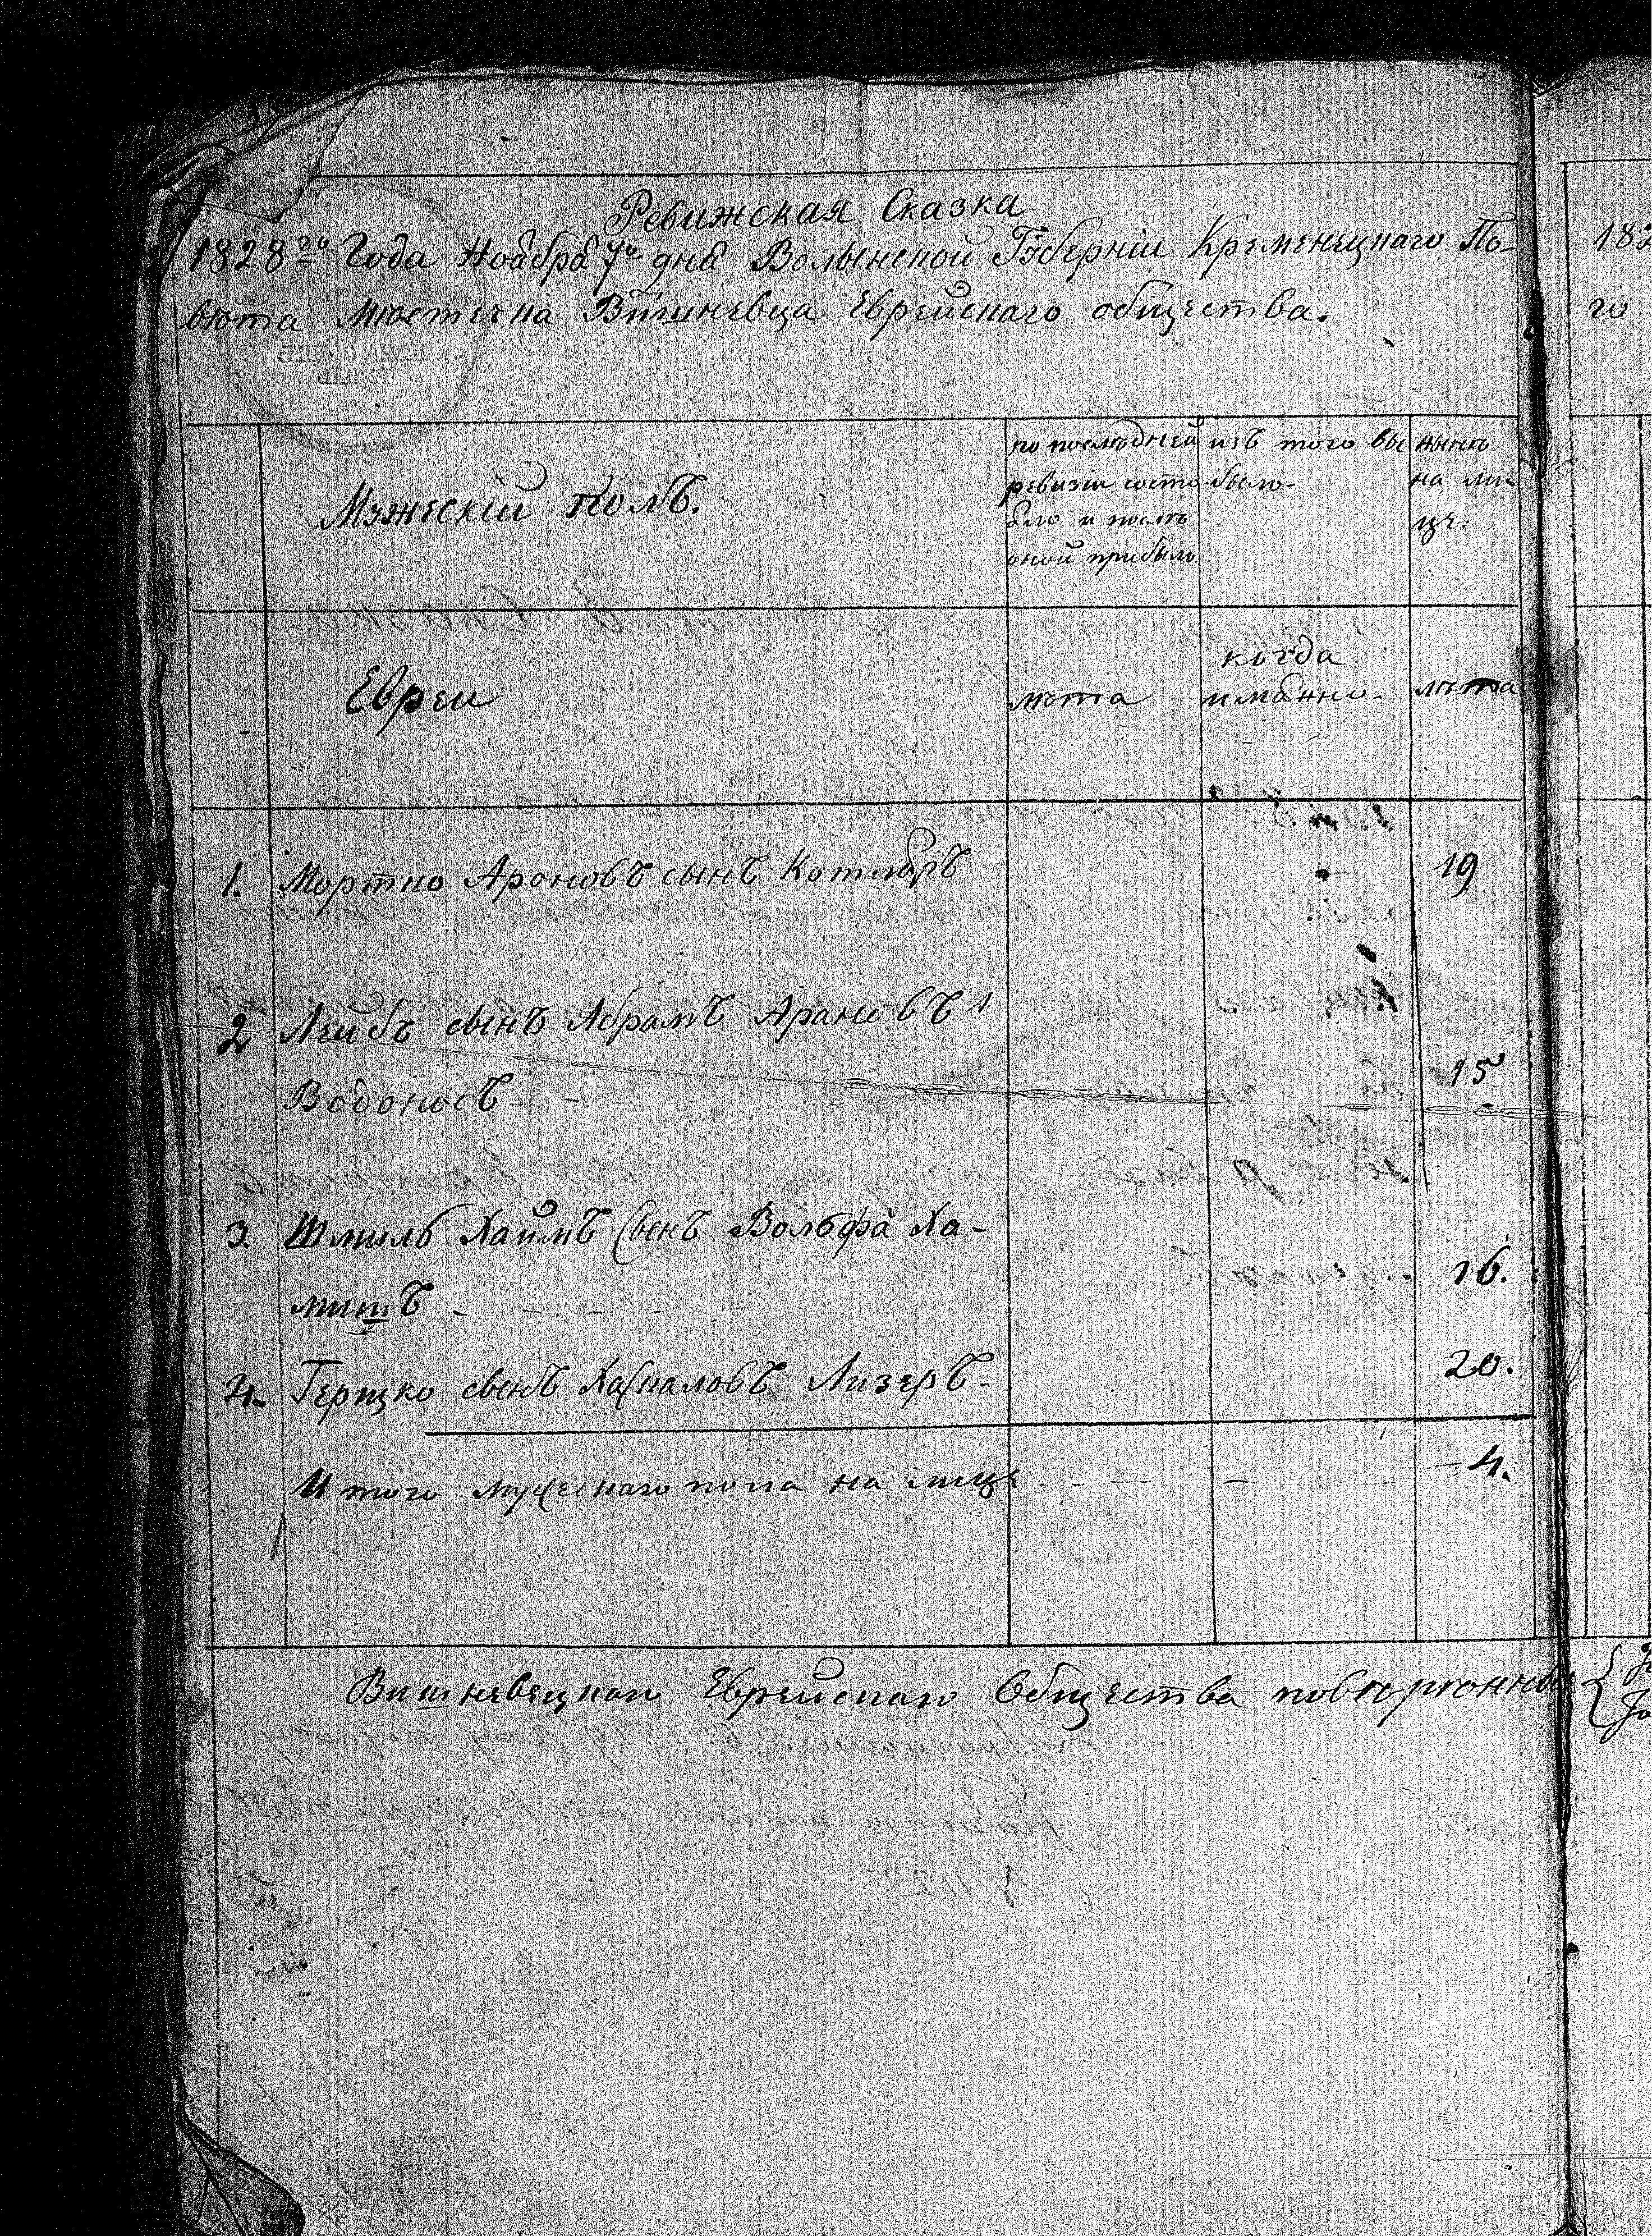 Ревижская Сказка
1828го Года Ноабра 7го дна Волынской Губернiи Кременецкаго По-
вѣта Мѣстечка Вишневца Еврейскаго общества.
Мужескiй полъ.
по последней
ревизiи состо
яло и послѣ
оной прибыло
изъ того вы
было-
нынѣ
на ли-
це.
Евреи
лѣта
когда
имянно-
лѣта
1. Мортко Ароновъ сынъ Котляръ 19
2 Лейбъ сынъ Абрамъ Арановъ
Водоносъ 15
3. Шмиль Хаимъ Сынъ Вольфа Ха-
мишъ - 16.
4. Гершко сынъ Лизеръ- 20.
Итого мужескаго пола на лице - 4.
Вишневецкаго Еврейскаго Общества
183
го